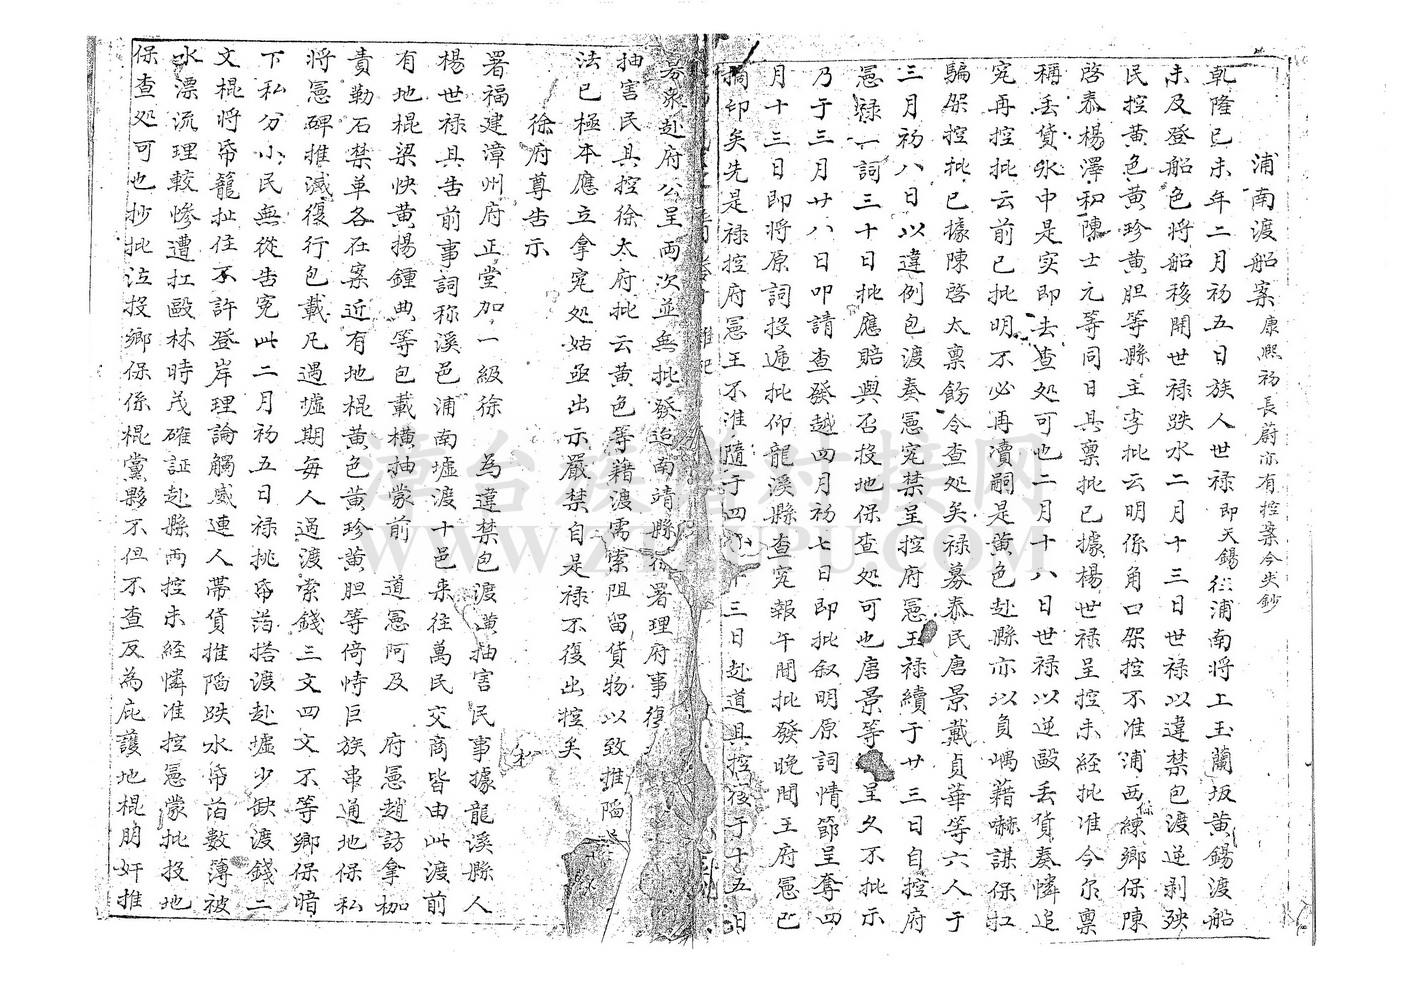 浦南渡船案康熙初長蔚亦有控案今失鈔
乾隆己未年二月初五日族人世禄即天錫往浦南将上玉蘭坂黄錫渡船
未及登船色将船移開世禄跌水二月十三日世禄以違禁包渡逆剥殃
民控黄色黄珍黄胆等縣主李批云明係角口架控不准浦西練鄉保陳
啓泰楊澤和陳士元等同日具禀批已據楊世禄呈控未經批准今尔禀
稱丢貨水中是实即去查处可也二月十八日世禄以逆毆丢貨奏憐追
究再控批云前已批明不必再瀆嗣是黄色赴縣亦以負嵎藉嚇謀保扛
騙架控批已據陳啓太禀飭令查处矣禄募泰民唐景戴貞華等六人于
三月初八日以違例包渡奏憲究禁呈控府憲王禄續于廿三日自控府
憲禄一詞三十日批應賠與否投地保查处可也唐景等呈久不批示
乃于三月廿八日叩請查發越四月初七日即批叙明原詞情節呈奪四
月十三日即将原詞投逓批仰龍溪縣查究報午間批發晚間王府憲已
摘印矣先是禄控府憲王不准隨于四十三日赴道具控後于十五日
雜記
募衆赴府公呈両次並無批發迨南靖縣徐署理府事復
抽害民具控徐太府批云黄色等藉渡需索阻留貨物以致推陷
法已極本應立拿究处姑亟出示嚴禁自是禄不復出控矣
徐府尊告示
署福建漳州府正堂加一級徐 為違禁包渡横抽害民事據龍溪縣人
楊世禄具告前事詞称溪邑浦南墟渡十邑来往萬民交商皆由此渡前
有地棍梁快黄揚鍾典等包載横抽蒙前 道憲阿及 府憲趙訪拿枷
責勒石禁革各在案近有地棍黄色黄珍黄胆等倚恃巨族串通地保私
将憲碑推滅復行包載凡遇墟期每人過渡索錢三文四文不等鄉保暗
下私分小民無從告究此二月初五日禄挑帋箔搭渡赴墟少缺渡錢二
文棍将帋籠扯住不許登岸理論觸威連人帯貨推陷跌水帋箔数簿被
水漂流理較慘遭扛毆林時茂確証赴縣両控未經憐准控憲蒙批投地
保查处可也抄批泣投鄉保係棍黨夥不但不查反為庇護地棍朋奸推
漳台族譜对接网
WWW.ZTZUPU.COM